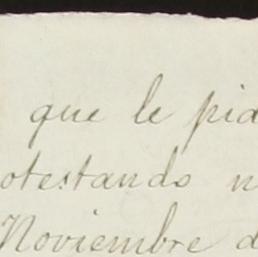 que le pid
otestando n
Noviembre d